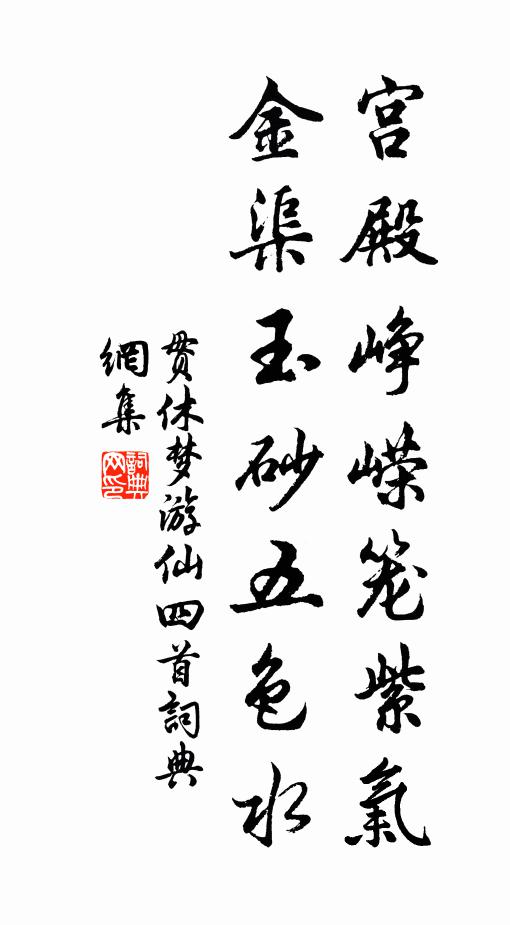 宫殿峥嵘笼紫氣
金渠玉砂五色水
贯休梦游仙四首詞典
網集
詞典
网印